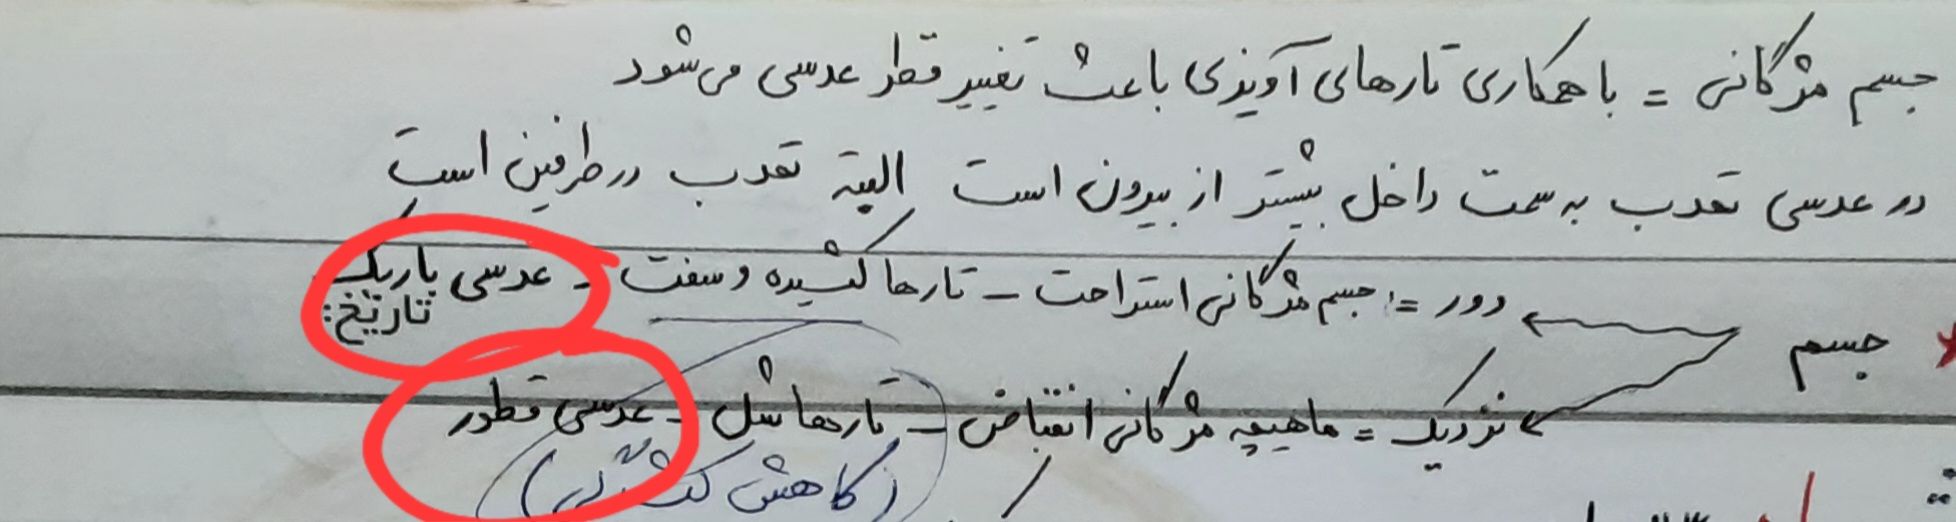 جسم مژگانی = با همکاری تارهای آویزی باعث تغییر قطر عدسی می‌شود
در عدسی تحدب به سمت داخل بیشتر از بیرون است البته تحدب در طرفین است
جسم
دور = جسم مژگانی استراحت - تارها کشیده و سفت - عدسی باریک
تاریخ:
نزدیک = ماهیچه مژگانی انقباض - تارها شل - عدسی قطور
(کاهش کشیدگی)